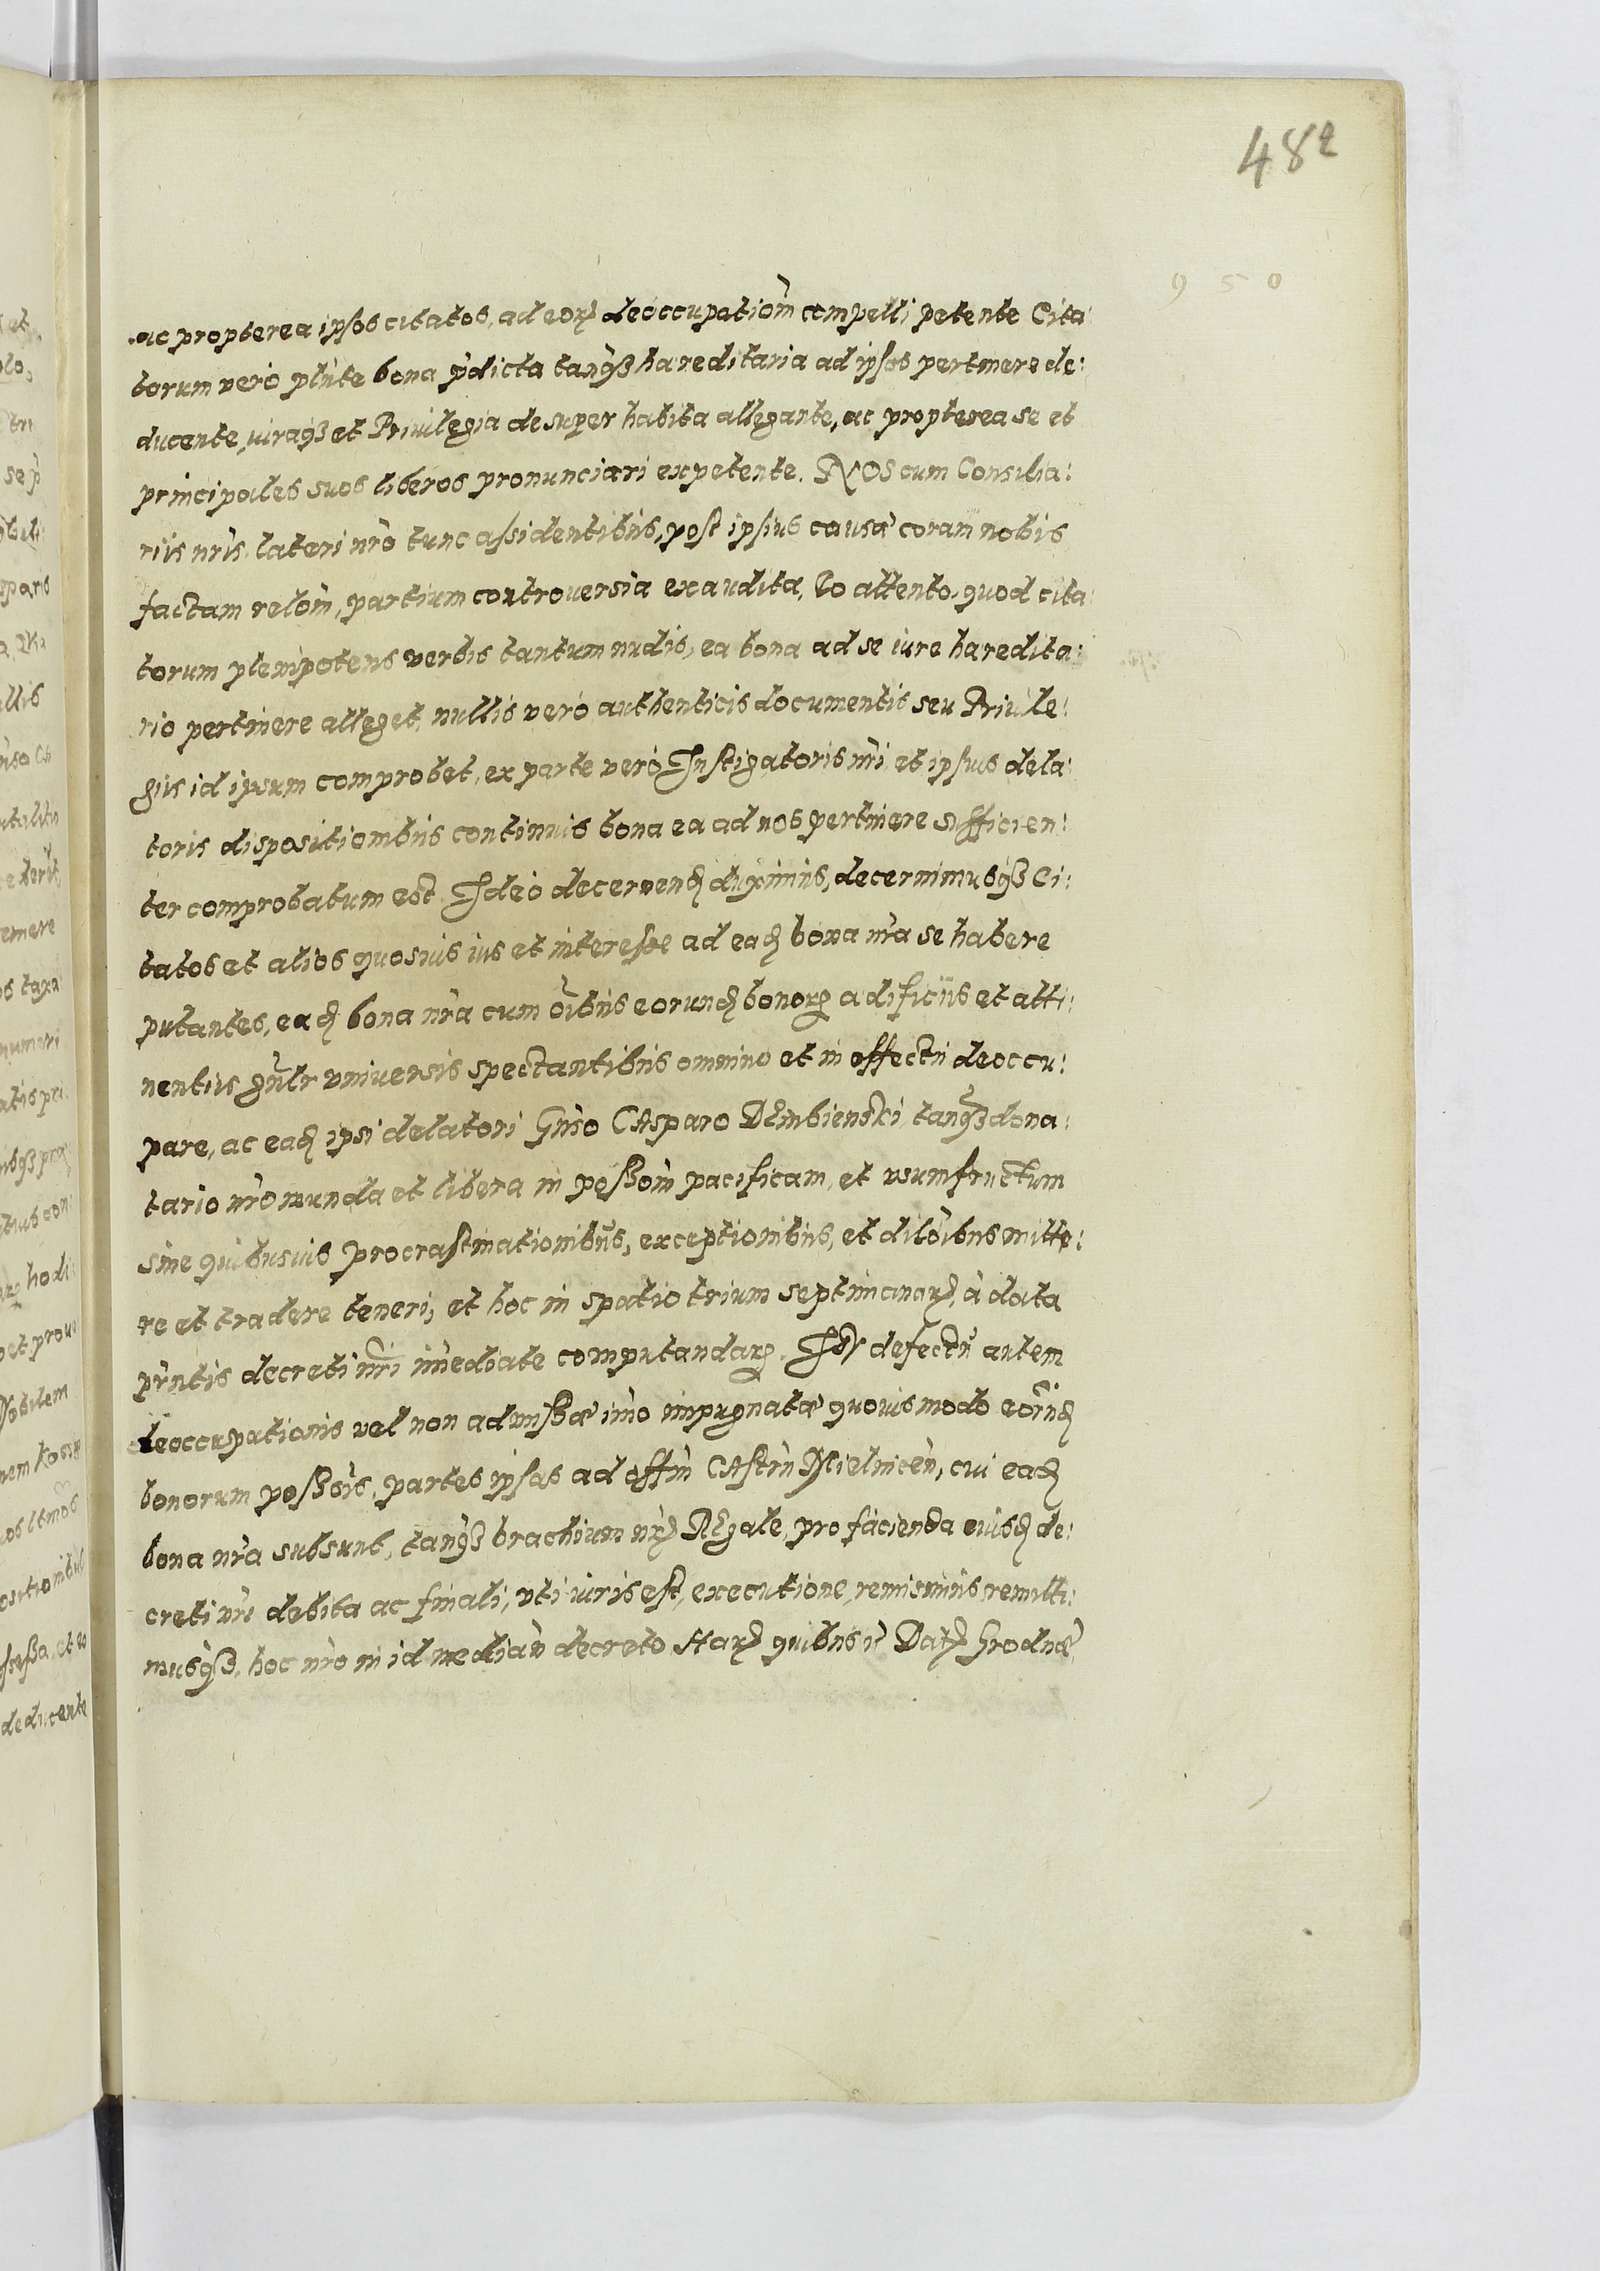 482
950
ac propterea ipsos citatos, ad eorꝫ deoccupatiom̃ compelli petente Cita:
torum vero plñte bona p̃dicta tanqꝫ hæreditaria ad ipsos pertinere de:
ducente, iuraqꝫ et Priuilegia desuper habita allegante, ac propterea se et
principales suos liberos pronunciari expetente. NOS cum Consilia:
riis nr̃is lateri nr̃o tunc assidentibus, post ipsius causæ coram nobis
factam relom̃, partium controuersia exaudita, Eo attento, quod cita:
torum plenipotens verbis tantum nudis, ea bona ad se iure hæredita:
rio pertinere alleget, nullis vero authenticis documentis seu Priuile:
giis id ipsum comprobet, ex parte vero Instigatoris nr̃i et ipsius dela:
toris dispositionibus continuis bona ea ad nos pertinere sufficien:
ter comprobatum est. Ideo decernendꝫ duximus, decernimusqꝫ Ci:
tatos et alios quosuis ius et interesse ad eadꝫ bona nr̃a se habere
putantes, eadꝫ bona nr̃a cum oĩbus eorundꝫ bonorꝫ ædificiis et atti:
nentiis gñlr vniuersis spectantibus omnino et in effectu deoccu:
pare, ac eadꝫ ipsi delatori Gñso CAsparo DEmbienski, tanqꝫ dona:
tario nr̃o munda et libera in possom̃ pacificam, et vsumfructum
sine quibusuis procrastinationibus, exceptionibus, et dilõibus mitte:
re et tradere teneri, et hoc in spatio trium septimanarꝫ, à data
pñtis decreti nr̃i im̃ediate computandarꝫ. defectu autem
deoccupationis vel non admissæ imo impugnatæ quouismodo eorũdꝫ
bonorum possõis, partes ipsas ad offm̃ CAstrñ Mielnicen̄, cui eadꝫ
bona nr̃a subsunt, tanqꝫ brachium nr̃ꝫ REgale, pro facienda euisdꝫ de:
creti nr̃i debita ac finali, vti iuris est, executione, remisimus, remitti:
musqꝫ, hoc nr̃o in id median̄ decreto Harꝫ quibus Datꝫ Grodnæ